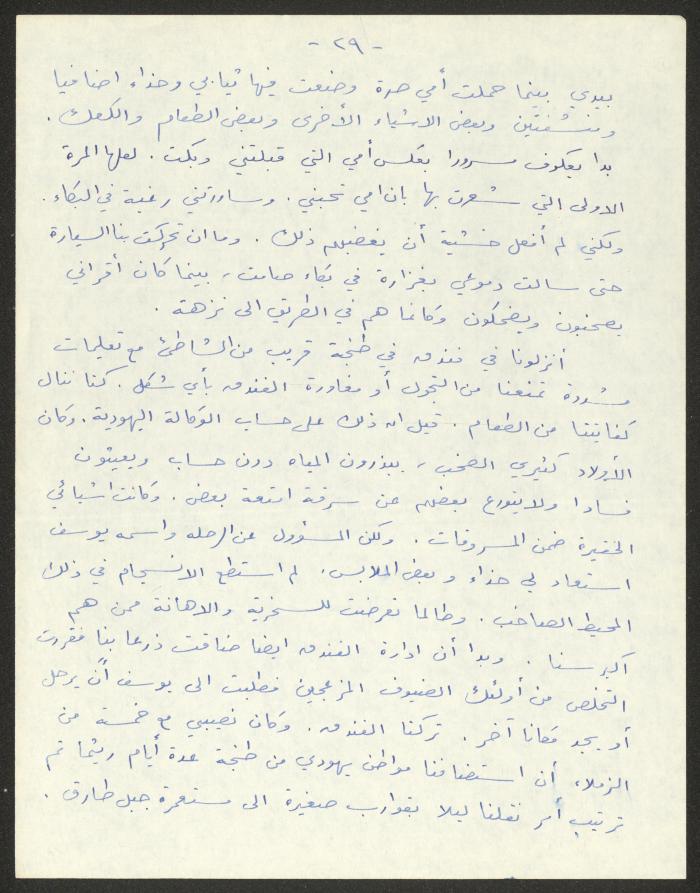 - ٢٩ -
بيدي بينما حملت أمي صرة وضعت فيها ثيابي وحذاء اضافيا
ومنشفتين وبعض الاشياء الأخرى وبعض الطعام والكعك .
بدا يعكوف مسرورا بعكس أمي التي قبلتني وبكت . لعلها المرة
الاولى التي شعرت بها بان امي تحبني . وساورتني رغبة في البكاء .
ولكني لم أفعل خشية أن يغضبهم ذلك . وما ان تحركت بنا السيارة
حتى سالت دموعي بغزارة في بكاء صامت ، بينما كان أقراني
يصخبون ويضحكون وكانما هم في الطريق الى نزهة .
أنزلونا في فندق في طنجة قريب من الشاطئ مع تعليمات
مشددة تمنعنا من التجول أو مغادرة الفندق بأي شكل . كنا ننال
كفايتنا من الطعام . قيل ان ذلك على حساب الوكالة اليهودية . وكان
الأولاد كثيري الصخب ، يبذرون المياه دون حساب ويعيثون
فسادا ولا يتورع بعضهم عن سرقة امتعة بعض . وكانت اشيائي
الحقيرة ضمن المسروقات . ولكن المسؤول عن الرحله واسمه يوسف
استعاد لي حذاء وبعض الملابس . لم استطع الانسجام في ذلك
المحيط الصاخب . وطالما تعرضت للسخرية والاهانة ممن هم
أكبر سنا . وبدا أن ادارة الفندق ايضا ضاقت ذرعا بنا فقررت
التخلص من أولئك الضيوف المزعجين فطلبت الى يوسف أن يرحل
أو يجد مكانا آخر . تركنا الفندق . وكان نصيبي مع خمسة من
الزملاء أن استضافنا مواطن يهودي من طنجة عدة أيام ريثما تم
ترتيب أمر نقلنا ليلا بقوارب صغيرة الى مستعمرة جبل طارق .